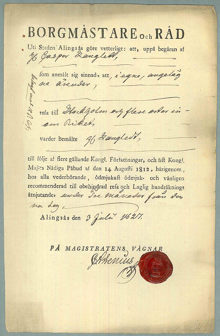 BORGMÄSTARE OCH RÅD
Uti Staden Alingsås göre vetterligt: att, uppå begäran af
Casper
som anmält sig sinnad att i egne, angeläg-
na ärender,
resa till Stockholm och flere orter in-
om Riket,
varder bemälte
till följe af flere gällande Kongl. Författningar, och sist Kongl.
Maj:ts Nådige Påbud af den 14 Augusti 1812, härigenom,
hos alla vederbörande, ödmjukast ödmjuk- och vänligen
recommenderad till obehindrad resa och Laglig handräcknings
åtnjutande under Tre månader från den-
na dag.
Alingsås den 3 Julii 1827.
PÅ MAGISTRATENS VÄGNAR